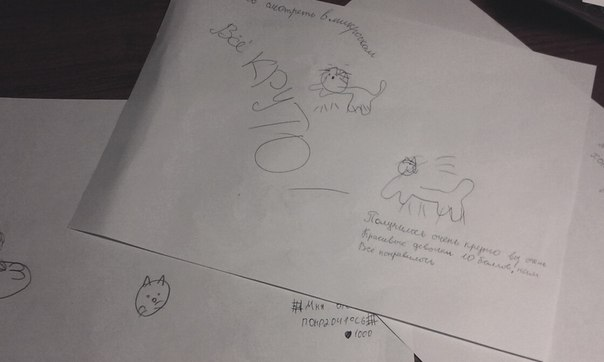 смотреть в микроскоп
Всё
КРУТО
Получилось очень круто вы очень
Красивые девочки 10 баллов! нам
Все понравилось
#Мне
ПОНРАВИЛОСЬ#
♥1000